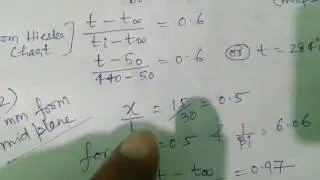 from Hiesler
Chart
t - t∞ / ti - t∞ = 0.6
t - 50 / 440 - 50 = 0.6 or t = 284
2)
mm from
mid plane
x / L = 15/30 = 0.5
for = 0.5 & 1/Bi = 6.06
t - t∞ = 0.97